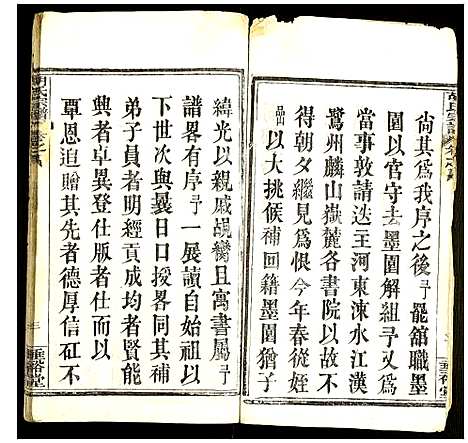 尙其爲我序之後予罷舘職墨
園以官守去墨園解組予又爲
當事敦請迭主河東涑水江漢
鸞州麟山嶽麓各書院以故不
得朝夕繼見爲恨今年春從姪
品以大挑候補回籍墨園猶子
緯光以親戚覿卿且寓書屬予
譜畧有序予一展讀自始祖以
下世次與曩日口授畧同其中
弟子員者明經貢成均者賢能
興者卓異登仕版者仕而以
覃恩追贈其先者德厚信矼不
胡氏宗譜
垂裕堂